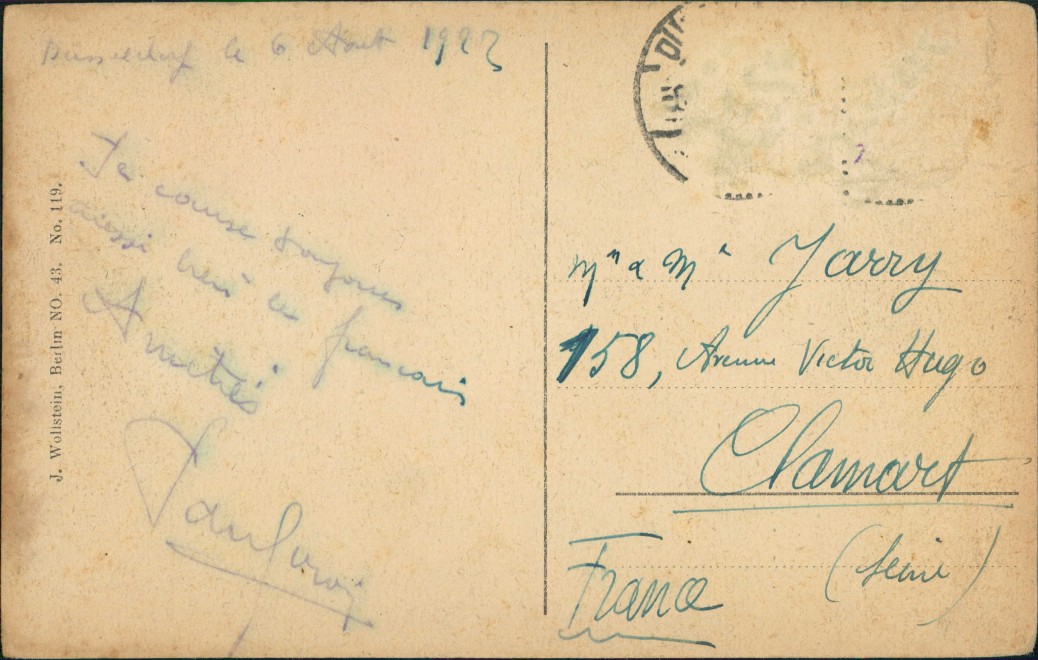 Düsseldorf le 6 Août 1923
Je cause toujours
aussi bien le français
Amitiés
J. Wollstein, Berlin NO. 43. No. 119.
Mr & Me Jarry
158, Avenue Victor Hugo
Clamart
(Seine)
France